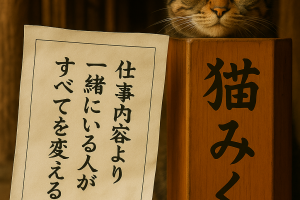 仕事内容より
一緒にいる人が
すべてを変える
猫みく